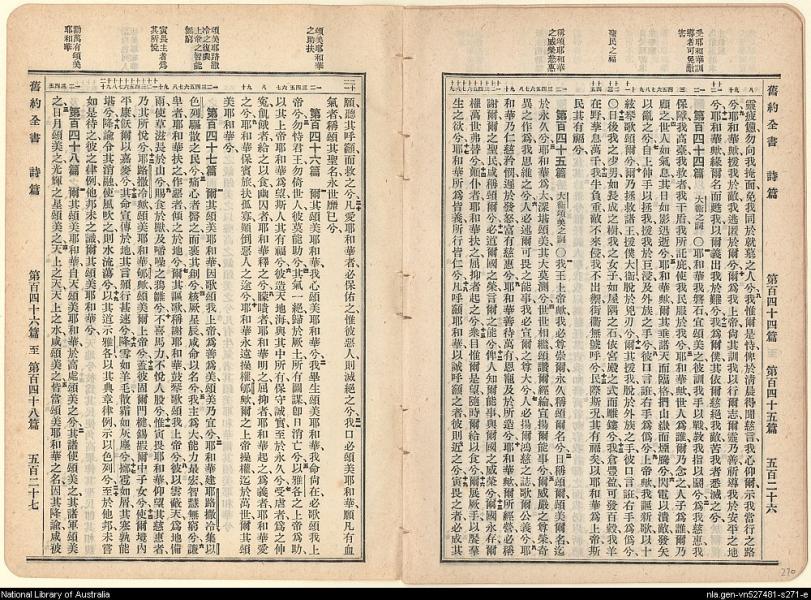 舊約全書 詩篇 第百四十四篇 至 第百四十五篇 五百二十六
受耶和華訓導者可免敵害
聖民之福
稱頌耶和華之威榮慈惠
靈疲憊勿向我掩面免我同於就墓之人兮我惟爾是恃俾於清晨得聞慈言我心仰爾示我當行之路
兮耶和華歟援我於敵我逃匿於爾兮爾爲我上帝尙其訓我以行爾志爾靈乃善祈導我於安平之地
兮耶和華歟緣爾名而甦我以爾義出我於難兮我爲爾僕其依爾慈絕我敵苦我者悉滅之兮
第百四十四篇 大衛之詞 ○耶和華我磐石宜頌美之彼訓我手以戰教我指以鬭兮爲我慈惠我
保障我高臺我救者我干盾我所託庇使我民服於我兮耶和華歟世人爲誰爾乃念之人子爲誰爾乃
顧之世人如氣息其日如影迅逝兮耶和華歟爾其垂諸天而臨格捫山嶽而煙騰兮閃電以潰敵發矢
以亂之兮自上伸手以拯我援我於巨浸及外族之手兮彼口言誑右手爲僞兮上帝歟我謳新歌以十
絃琴歌頌爾兮爾乃拯救諸王援僕大衛脫於兇刃兮爾其援我脫於外族之手彼口言誑右手爲僞兮
○日後我之少男如長成之樹我之女子如屋隅之石依宮殿之式而雕鏤兮我倉豐盈可發百穀我羊
在野孳息萬千兮我牛負重敵不來侵我不出禦街衢無號呼兮民際斯況其有福矣以耶和華爲上帝斯
民其有福兮
第百四十五篇 大衛頌美之詞 ○我王上帝歟我必尊崇爾永久稱頌爾名兮日稱頌爾頌美爾名迄
於永久兮耶和華爲大深堪頌美其大莫測兮世世相繼頌讚爾經綸宣揚爾能事兮爾威嚴之尊榮奇
異之作爲我思維之兮人必述爾可畏之能事我必宣爾之尊大兮人必揚爾鴻慈之誌歌爾公義兮耶
和華乃仁慈矜憫遲於發怒富有慈惠兮耶和華善待萬有恩寵及於所造兮耶和華歟爾所經營必稱
謝爾爾之聖民咸稱頌爾兮必道爾國之榮言爾之能兮俾人知爾能事與爾國之威榮兮爾國永存爾
權萬世弗替兮顛仆者耶和華扶之屈抑者起之兮衆目惟爾是望隨時給以食兮爾展厥手以饜羣
生之欲兮耶和華所爲皆義所行皆仁兮凡呼籲耶和華以誠呼籲之者彼則近之兮寅畏之者必成其
頌耶和華之助扶
頌美耶路撒冷之復興上帝之智能無窮
寅畏主者爲其所悅
勸萬有頌美耶和華
願聽其呼籲而救之兮凡愛耶和華者必保佑之惟彼惡人則滅絕之兮我口必頌美耶和華願凡有血
氣者稱頌其聖名永世靡已兮
第百四十六篇 爾其頌美耶和華我心頌美耶和華兮我畢生頌美耶和華我命尙在必歌頌我上
帝兮勿恃君王勿倚世人彼莫能助兮其氣一絕歸於厥土所有圖謀即日消亡兮以雅各之上帝爲助
以其上帝耶和華爲望斯人其有福兮彼造天地海與其中所有保守誠實至於永久兮受虐者爲之伸
冤飢餓者給之以食幽囚者耶和華釋之兮矇瞽者耶和華明之屈抑者耶和華起之爲義者耶和華愛
之兮耶和華保賓旅扶孤寡傾倒惡人之途兮耶和華永遠操權郇歟爾之上帝操權迄於萬世爾其頌
美耶和華兮
第百四十七篇 爾其頌美耶和華因歌頌我上帝爲善爲美頌美乃宜兮耶和華建耶路撒冷集以
色列驅散之民兮痛心者醫之而裹其創兮核厥星辰咸命以名兮我主爲大能力最宏智慧無窮兮謙
卑者耶和華扶之作惡者傾之於地兮爾其謳歌稱謝耶和華鼓琴歌頌我上帝兮彼以雲蔽天爲地備
雨使草滋長於山兮賜食於獸及啼噪之鴉雛兮不喜馬力不悅人股兮惟寅畏耶和華仰望其慈惠者
乃其所悅兮耶路撒冷歟頌美耶和華郇歟頌美爾上帝兮蓋彼固爾門楗錫嘏爾中子女兮使爾境內
平康飫爾以嘉麥兮其命宣傳於地其言頒行甚速兮降雪如羊毛散霜如灰塵兮擲雹如屑其寒孰能
堪兮降諭令其消融使風吹之則水流蕩兮以其道示雅各以其典章律例示以色列兮至於他邦未嘗
如是待之彼之律例他邦未之識爾其頌美耶和華兮
第百四十八篇 爾其頌美耶和華自天頌美耶和華於高處頌美之兮其諸使頌美之其諸軍頌美
之日月頌美之光輝之星頌美之兮天上之天天上之水咸頌美之皆當頌美耶和華之名因其降諭咸被
舊約全書 詩篇 第百四十六篇 至 第百四十八篇 五百二十七
270
National Library of Australia
nla.gen-vn527481-s271-e